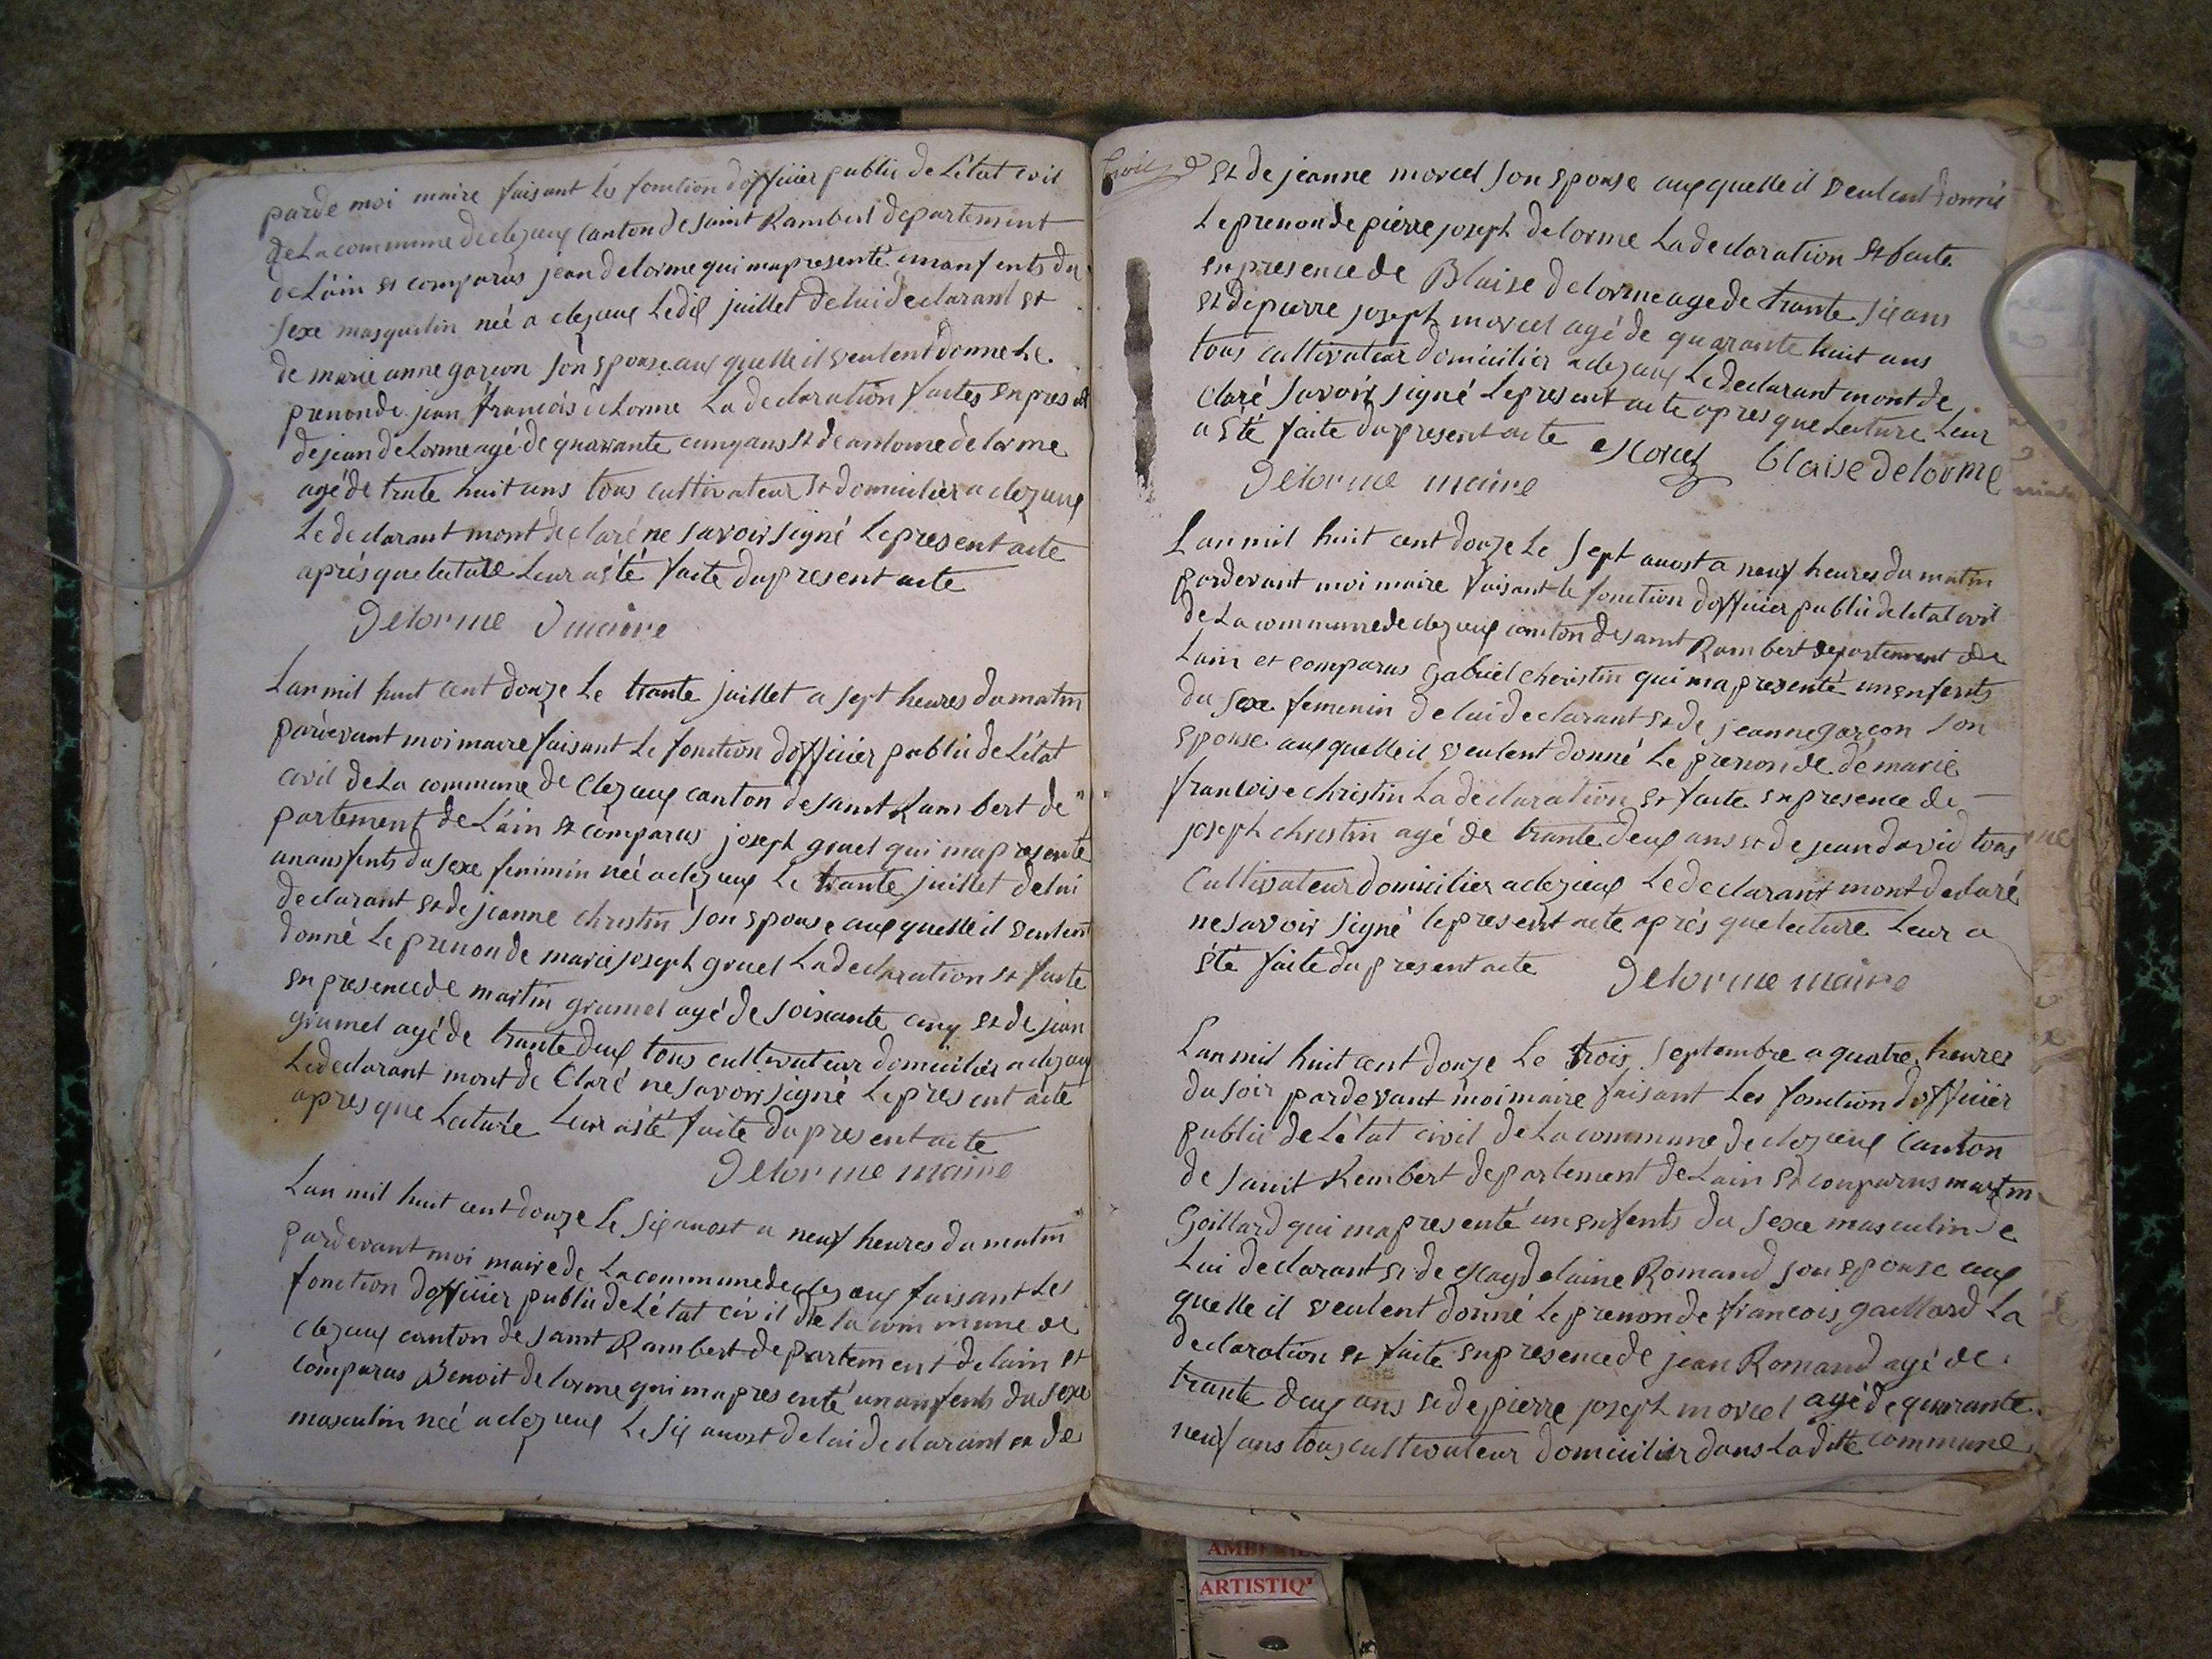 parde moi maire faisant les fonction dofficier public de Létat civil
de La commune de clezieux canton de saint Rambert departement
de L'ain et comparus jean delorme qui ma presenté unanfents du
sexe masqulin neé a clezieux Le dix juillet de lui declarant et
de marie anne garcon son epouse aux quelle il veulent donné Le
prenon de jean françois delorme La declaration faites en pres
de jean delorme agé de quarante cinq ans et de antoine delorme
agé de trate huit ans tous cultivateur et domicilier a clezieux
Le declarant mont declaré ne savoir signé Le present acte
aprés que lecture Leur a été faite du present acte
Delorme maire
Lan mil huit cent douze Le trante juillet a sept heures du matin
pardevant moi maire faisant Le fonction dofficier public de L'état
civil de La commune de clezieux canton de saint Rambert de
partement de L'ain et comparus joseph gruel qui ma presente
unanfents du sexe feminin neé a clezieux Le trante juillet de lui
declarant et de jeanne christin son epouse aux quelle il veulent
donné Le prenon de marie joseph gruel La declaration et faite
en presence de martin grumel agé de soixante cinq et de jean
grumel agé de trante deux tous cultivateur domicilier a clezieux
Le declarant mont de claré ne savoir signé Le present acte
apres que Lecture Leur a été faite du present acte
Delorme maire
Lan mil huit cent douze Le six auost a neuf heures du matin
pardevant moi maire de La commune de clezieux faisant Les
fonction dofficier public de L'état civil de la commune de
clezieux canton de saint Rambert departement de lain et
comparus Benoit delorme qui ma presenté unanfents du sexe
masculin neé a clezieux Le six auost de lui declarant et de
et de jeanne morcel son epouse aux quelle il veulent donné
Le prenon de pierre joseph delorme La declaration et faite
en presence de Blaise delorme age de trante six ans
et de pierre joseph morcel agé de quarante huit ans
tous cultivateur domicilier a clezieux Le declarant mont de
claré savoir signé Le present acte apres que Lecture Leur
a été faite du present acte Morcel blaise delorme
Delorme maire
Lan mil huit cent douze Le sept auost a neuf heures du matin
pardevant moi maire faisant le fonction dofficier public de letat civil
de La commune de clezieux canton de saint Rambert departement de
Lain et comparus gabriel christin qui ma presenté un enfents
du sexe femenin de lui declarant et de jeanne garcon son
epouse aux quelle il veulent donné Le prenon de de marie
francoise christin La declaration et faite en presence de
joseph christin agé de trante deux ans et de jean david tous
Cultivateur domicilier a clezieux Le declarant mont declaré
ne savoir signé le present acte aprés que lecture Leur a
été faite du present acte Delorme maire
Lan mil huit cent douze Le trois septembre a quatre heures
du soir pardevant moi maire faisant Les fonction dofficier
public de L'état civil de La commune de clezieux canton
de saint Rembert departement de Lain et comparus martin
Gaillard qui ma presenté un enfents du sexe masculin de
Lui declarant et de Magdelaine Romand son epouse aux
quelle il veulent donné Le prenon de francois gaillard La
declaration et faite en presence de jean Romand agé de
trante deux ans et de pierre joseph morcel agé de quarante
neuf ans tous cultivateur domicilier dans La ditte commune
ARTISTIQ